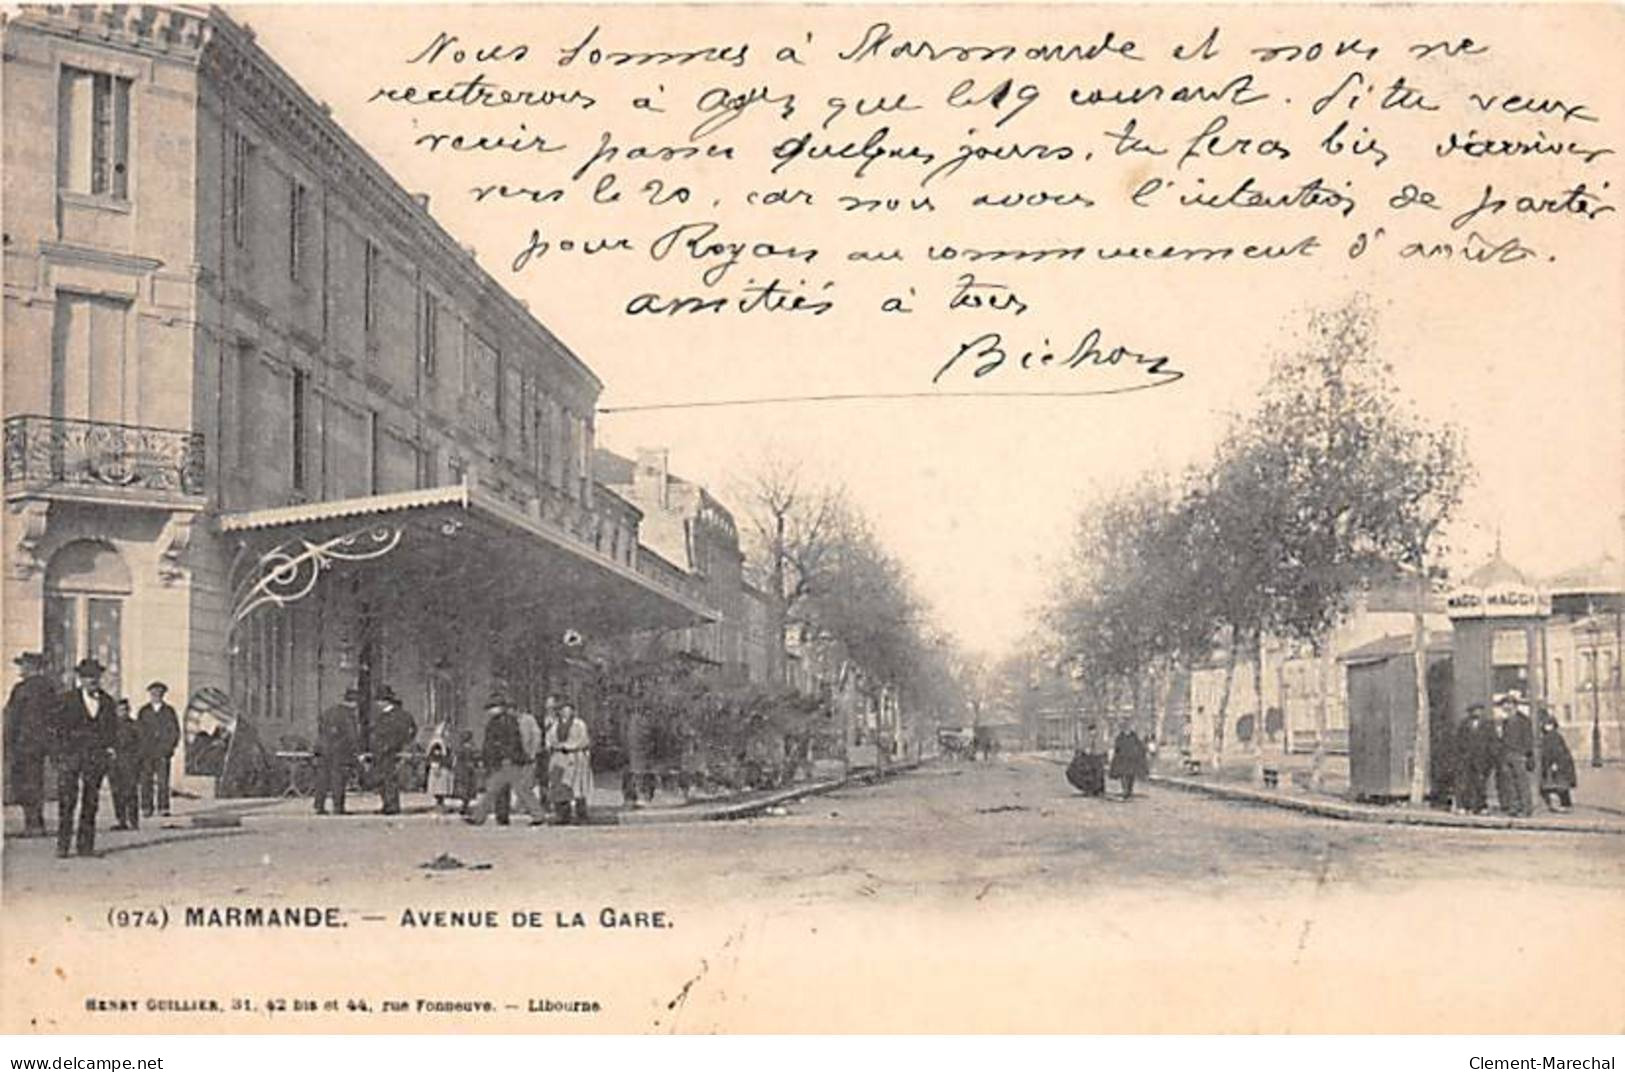 Nous sommes à Marmande et nous ne
rentrerons à Agen que le 19 courant. Si tu veux
venir passer quelques jours, tu feras bien d'arriver
vers le 20, car nous avons l'intention de partir
pour Royan au commencement d'août.
amitiés à tous
Bichon
MAGGI MAGGI
(974) MARMANDE. — AVENUE DE LA GARE.
HENRY GUILLIER, 31, 42 bis et 44, rue Fonneuve. — Libourne
delcampe.net
Clement-Marechal